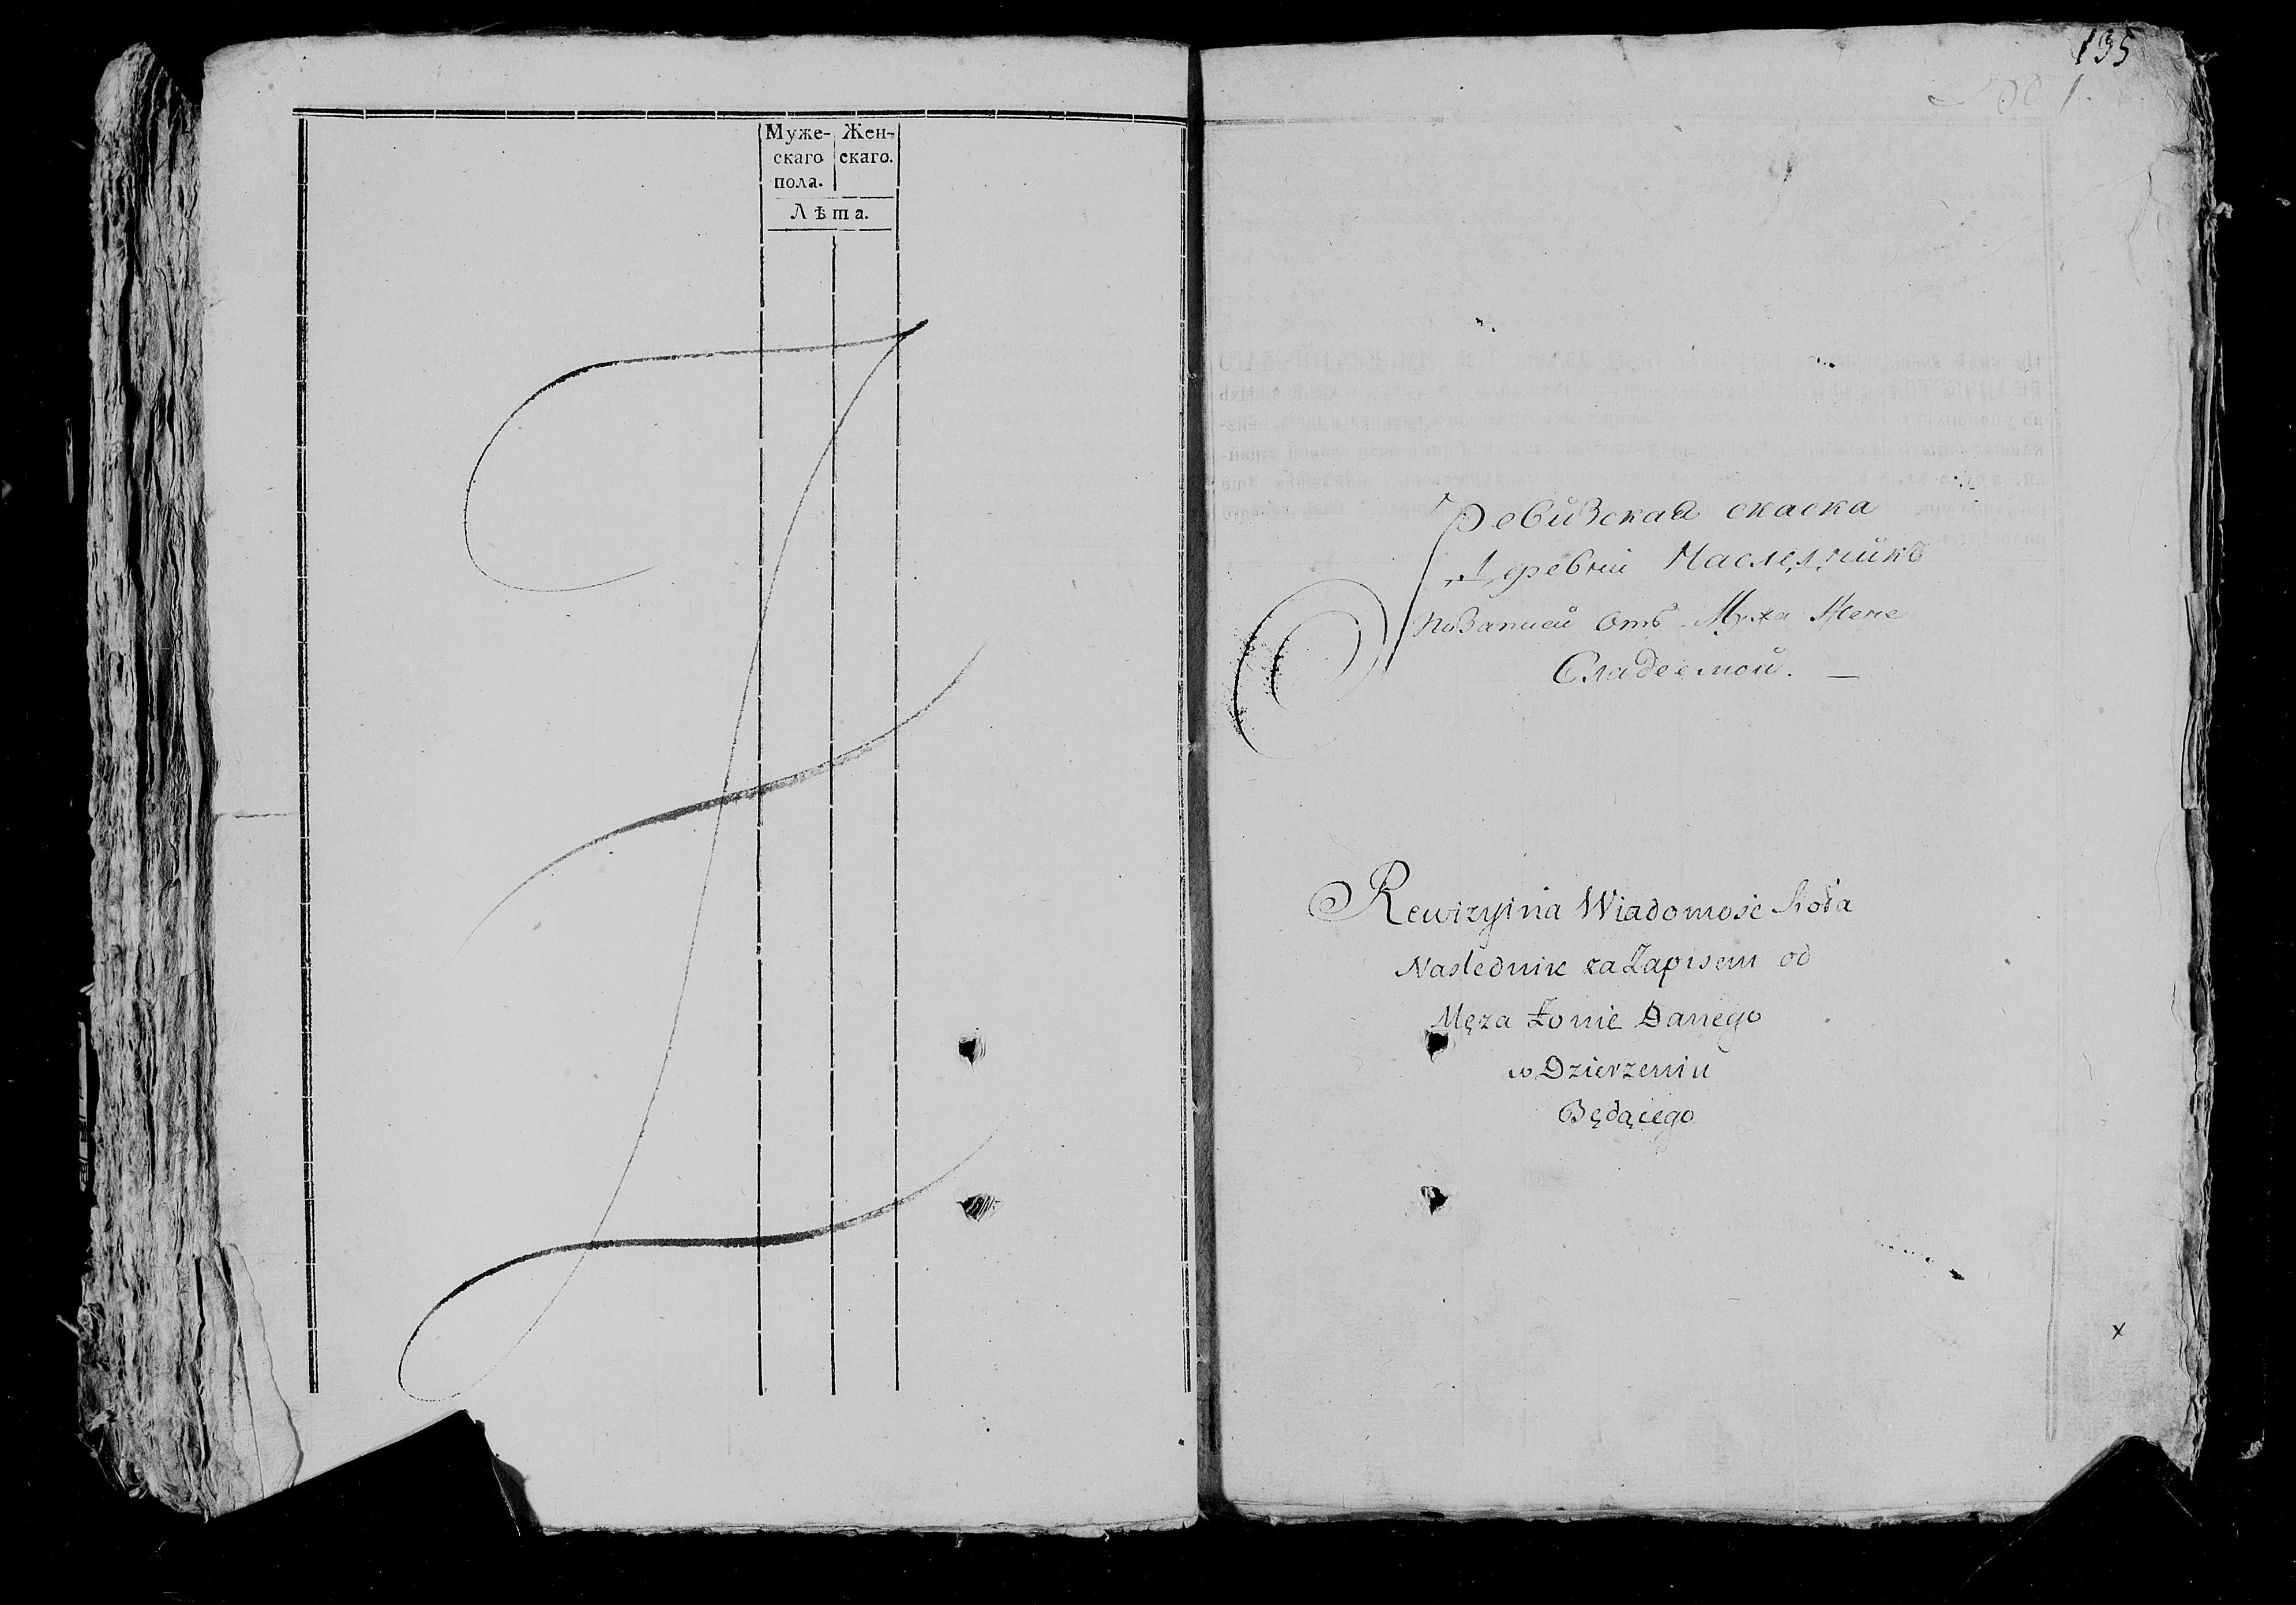 Муже- Жен-
скаго скаго.
пола.
Лѣта.
135
Ревизская скаска
Деревни Наследникъ
По Записи отъ Мужа Жене
Сладеемой. —
Rewizyina Wiadomość Sioła
Naslednik za Zapisem od
Męża Żonie Danego
w Dzierzeniu
Będącego
x